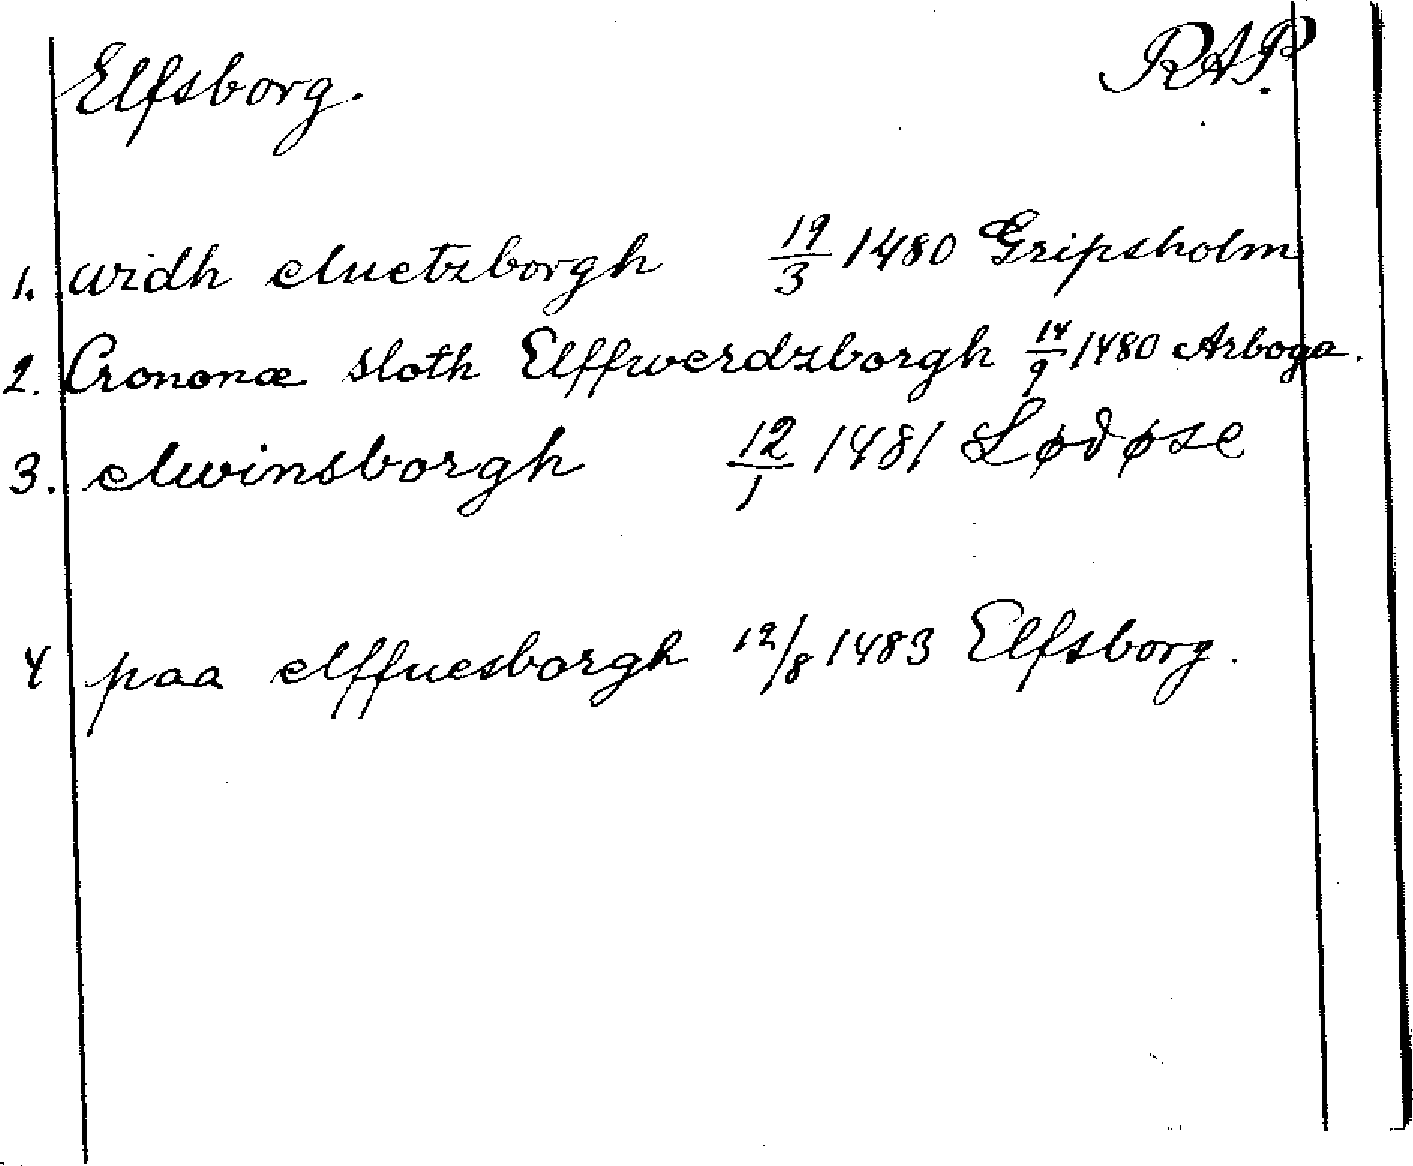 Elfsborg. RAP.
1. widh eluetzborgh 19/3 1480 Gripsholm
2. Crononæ sloth Elffwerdzborgh 14/9 1480 Arboga.
3. elwinsborgh 12/1 1481 Lødøse
4 paa elffuesborgh 12/8 1483 Elfsborg.